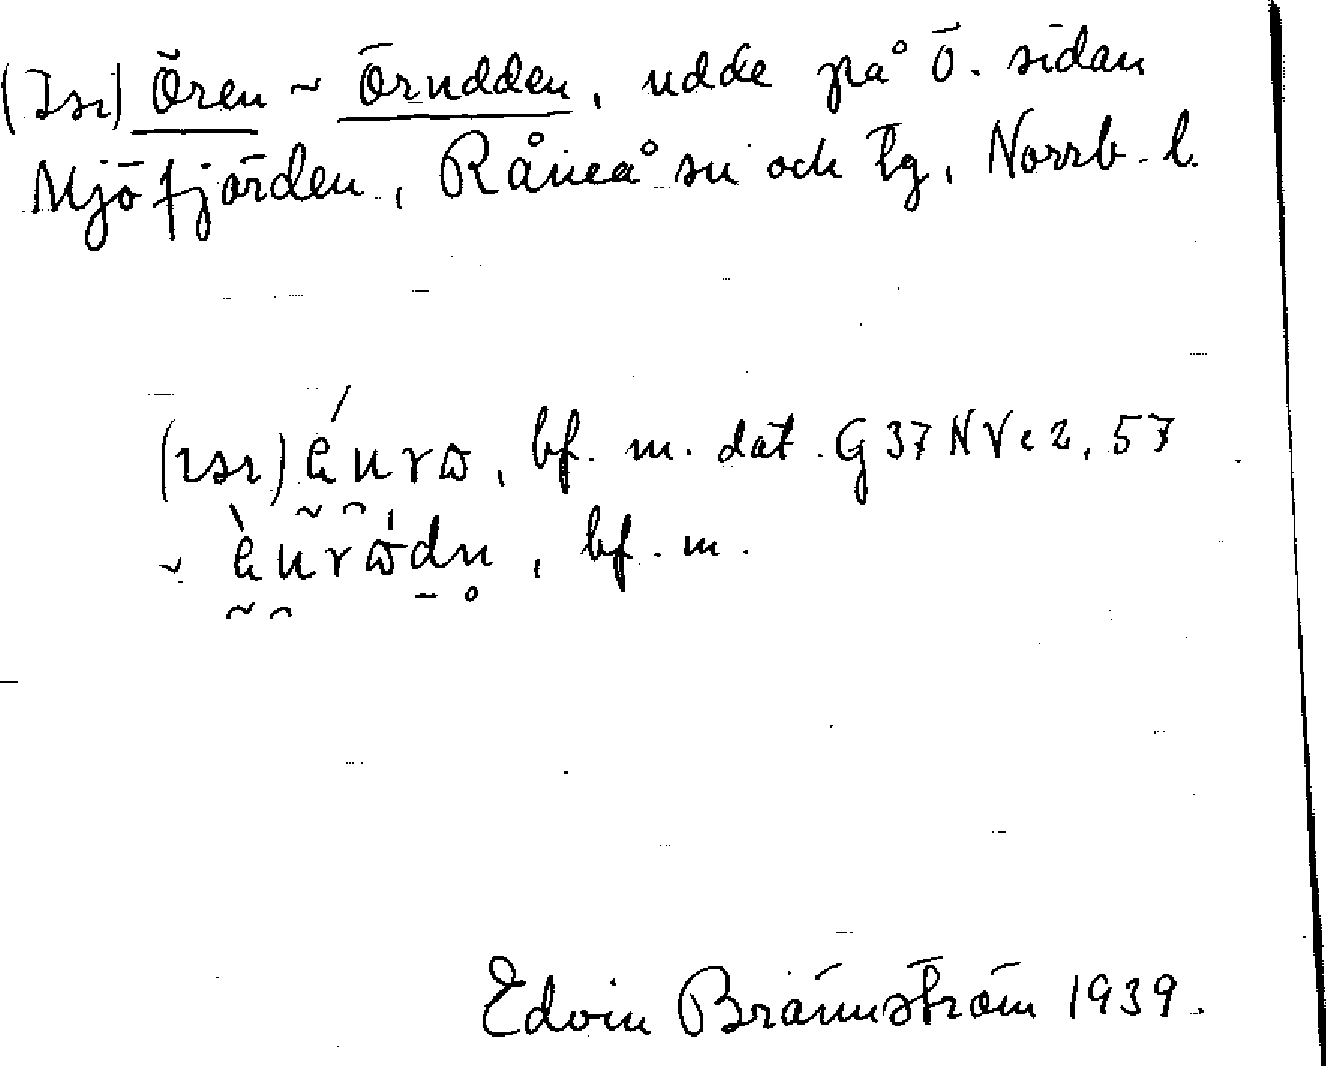 Ören ~ Örudden, udde på ö. sidan
Mjöfjärden, Råneå sn och tg, Norrb. l.
bf. m. dat. G 37 NV c 2, 57
~ bf. m.
Edvin Brännström 1939.